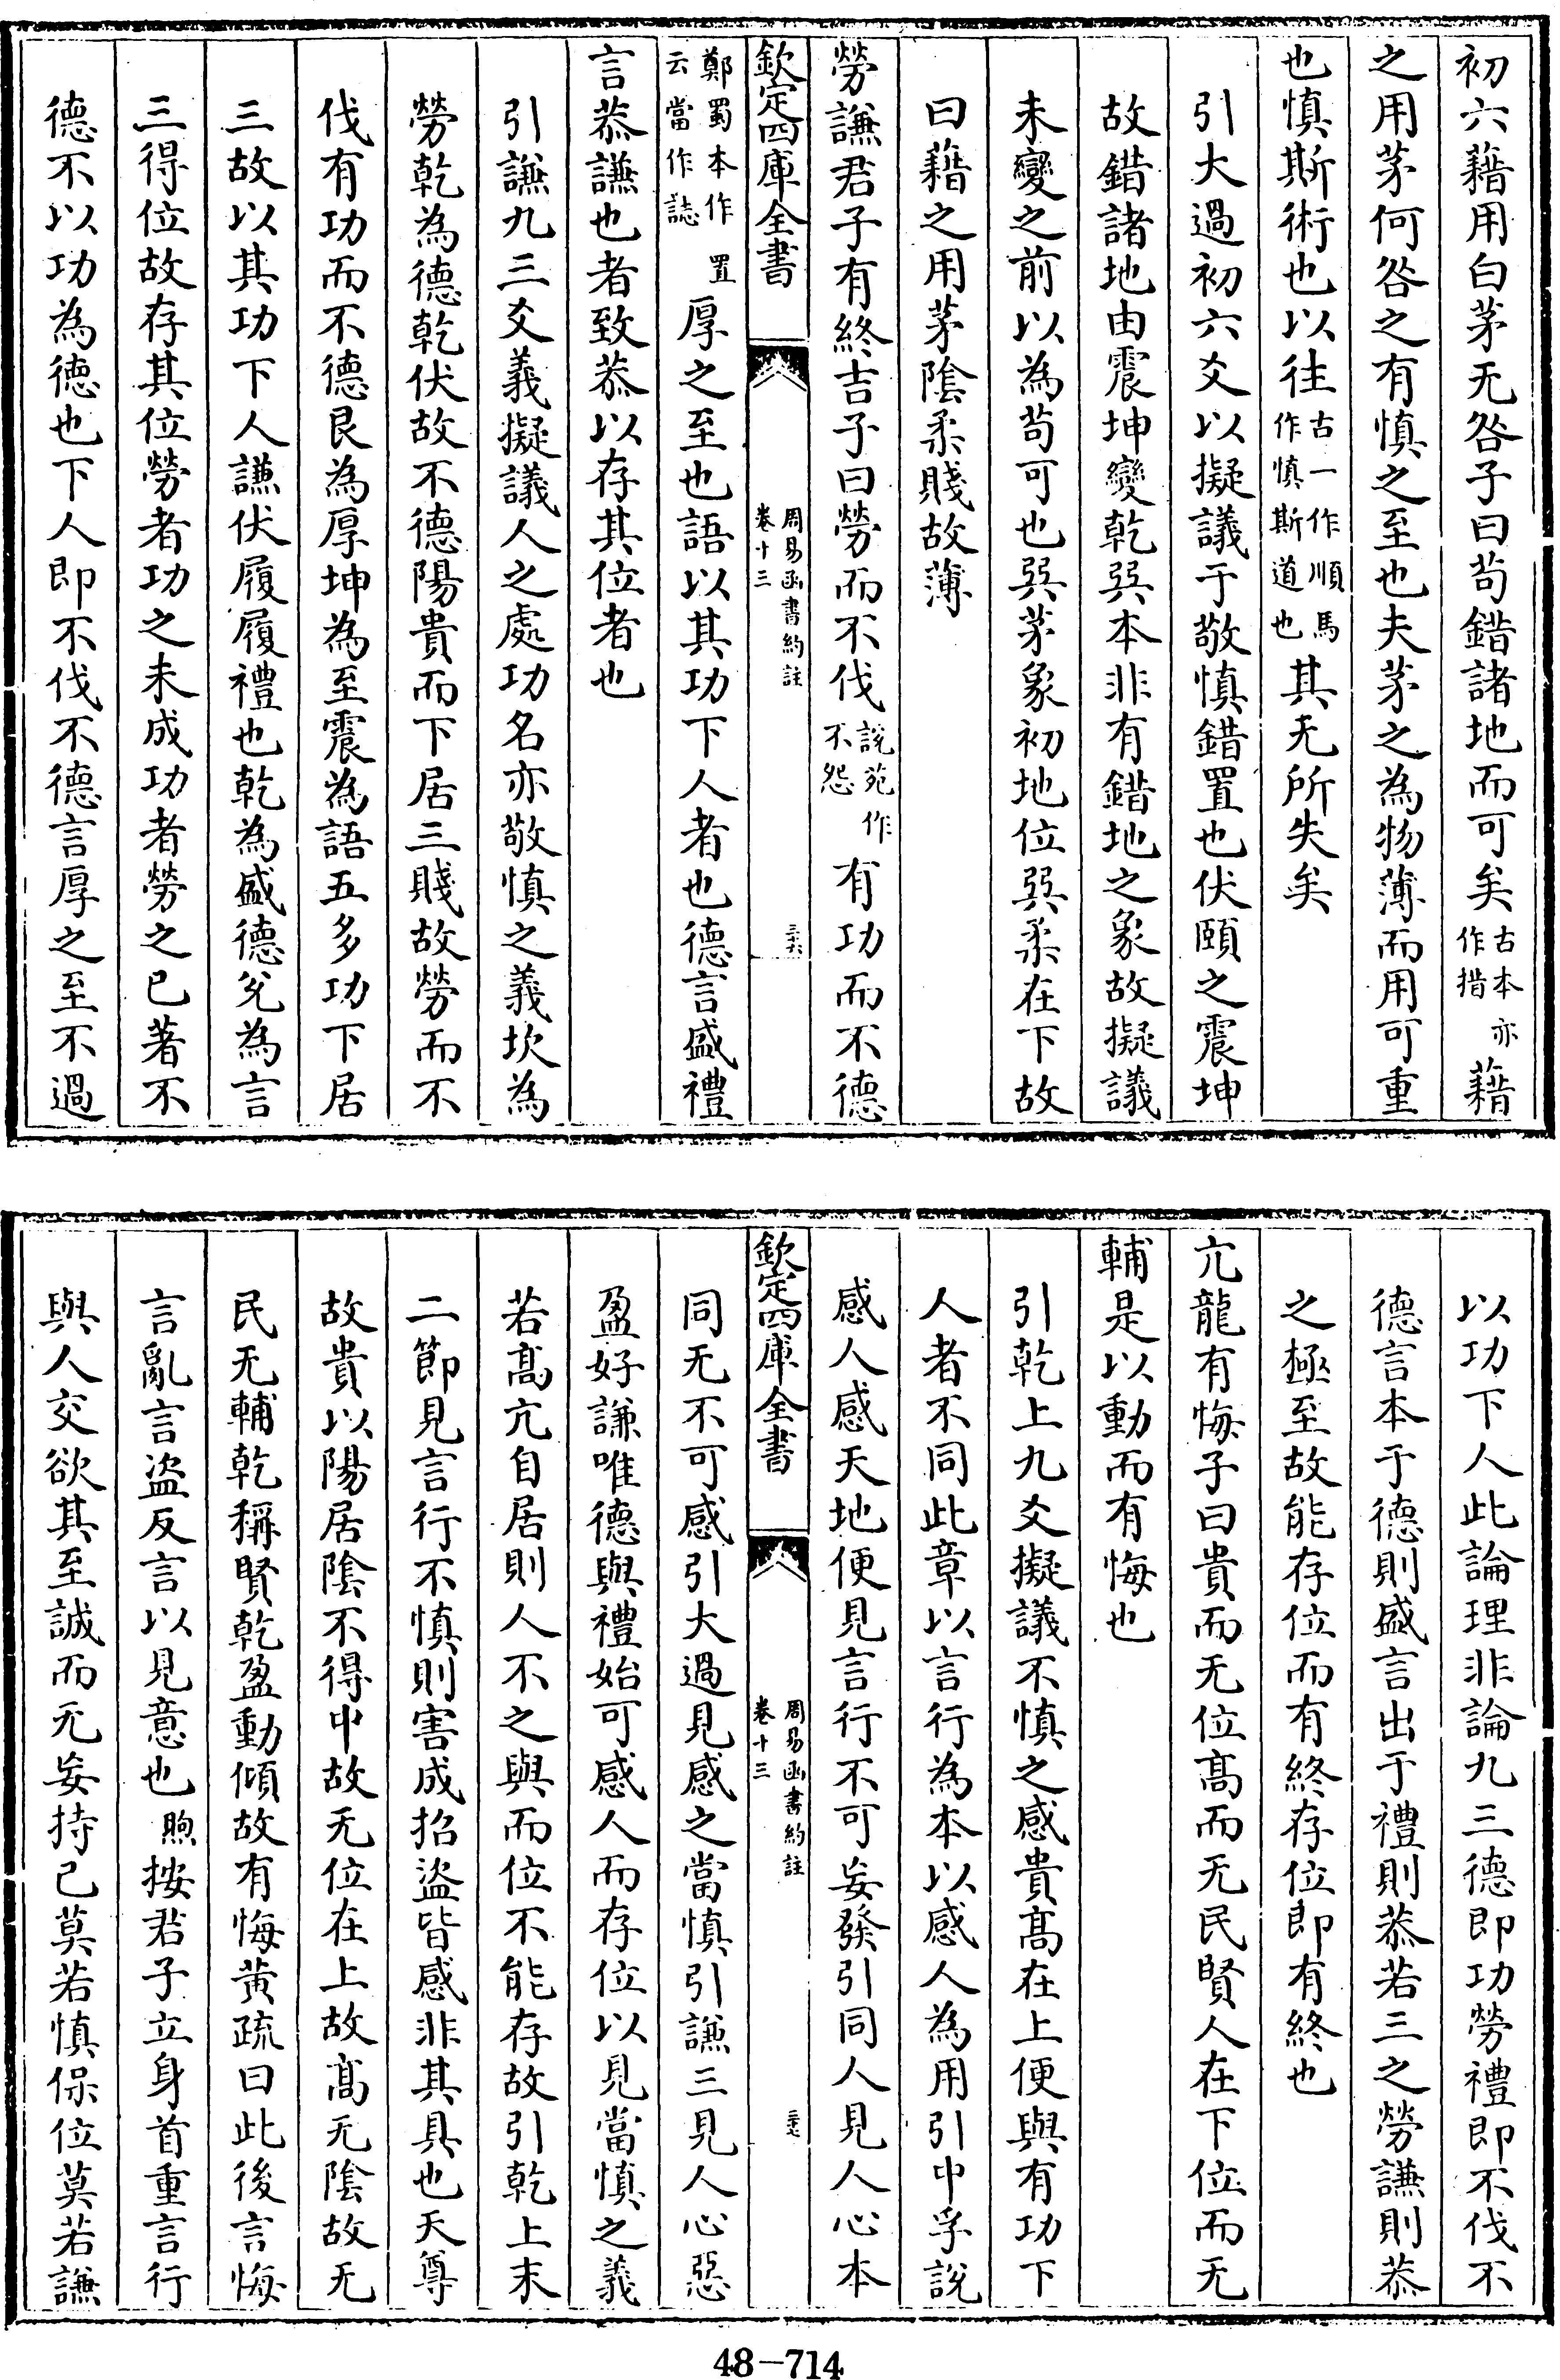 初六藉用白茅无咎子曰茍錯諸地而可矣古本亦作措藉
之用茅何咎之有慎之至也夫茅之為物薄而用可重
也慎斯術也以往古一作順馬作慎斯道也其无所失矣
引大過初六爻以擬議于敬慎錯置也伏頤之震坤
故錯諸地由震坤變乾巽本非有錯地之象故擬議
未變之前以為茍可也巽茅象初地位巽柔在下故
曰藉之用茅陰柔賤故薄
勞謙君子有終吉子曰勞而不伐說苑作不怨有功而不德
欽定四庫全書
周易函書約註
卷十三
三十六
鄭蜀本作置云當作誌厚之至也語以其功下人者也德言盛禮
言恭謙也者致恭以存其位者也
引謙九三爻義擬議人之處功名亦敬慎之義坎為
勞乾為德乾伏故不德陽貴而下居三賤故勞而不
伐有功而不德艮為厚坤為至震為語五多功下居
三故以其功下人謙伏履履禮也乾為盛德兌為言
三得位故存其位勞者功之未成功者勞之已著不
德不以功為德也下人即不伐不德言厚之至不過
以功下人此論理非論九三德即功勞禮即不伐不
德言本于德則盛言出于禮則恭若三之勞謙則恭
之極至故能存位而有終存位即有終也
亢龍有悔子曰貴而无位髙而无民賢人在下位而无
輔是以動而有悔也
引乾上九爻擬議不慎之感貴髙在上便與有功下
人者不同此章以言行為本以感人為用引中孚說
感人感天地便見言行不可妄發引同人見人心本
欽定四庫全書
周易函書約註
卷十三
三十七
同无不可感引大過見感之當慎引謙三見人心惡
盈好謙唯德與禮始可感人而存位以見當慎之義
若髙亢自居則人不之與而位不能存故引乾上末
二節見言行不慎則害成招盜皆感非其具也天尊
故貴以陽居陰不得中故无位在上故髙无陰故无
民无輔乾稱賢乾盈動傾故有悔黃疏曰此後言悔
言亂言盜反言以見意也煦按君子立身首重言行
與人交欲其至誠而无妄持己莫若慎保位莫若謙
48-714